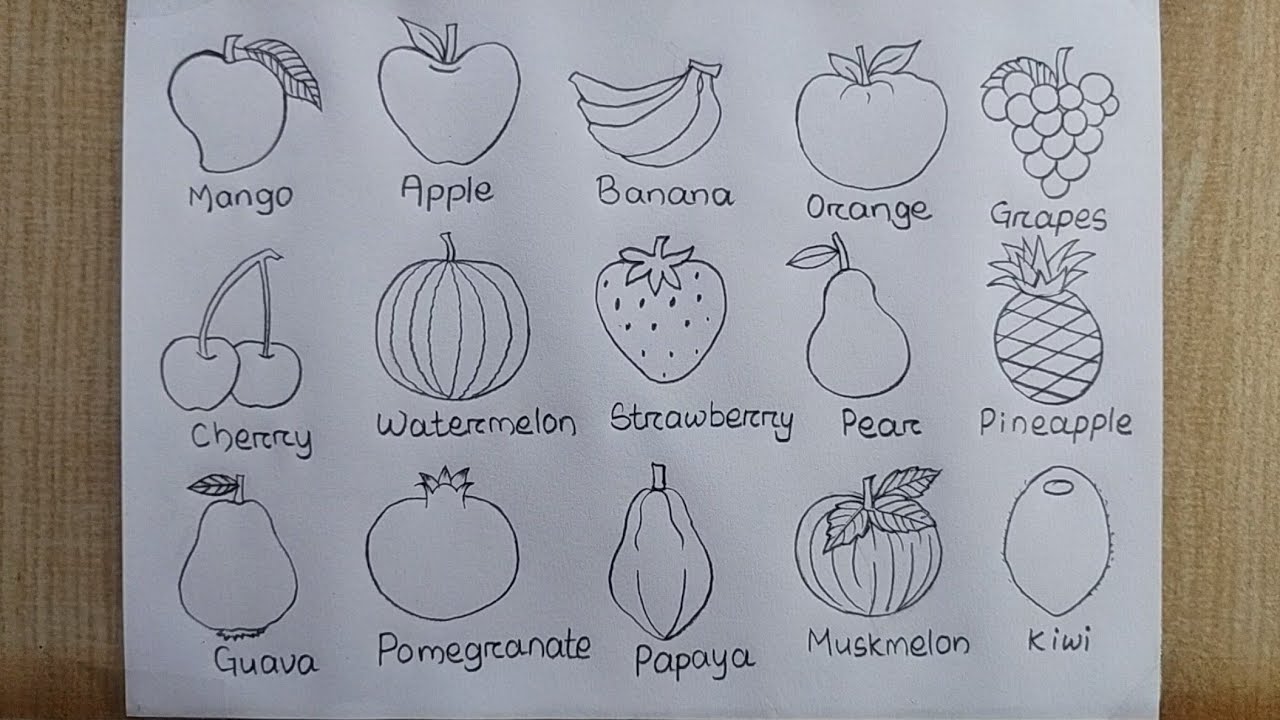 Mango Apple Banana Orange Grapes
Cherry Watermelon Strawberry Pear Pineapple
Guava Pomegranate Papaya Muskmelon Kiwi